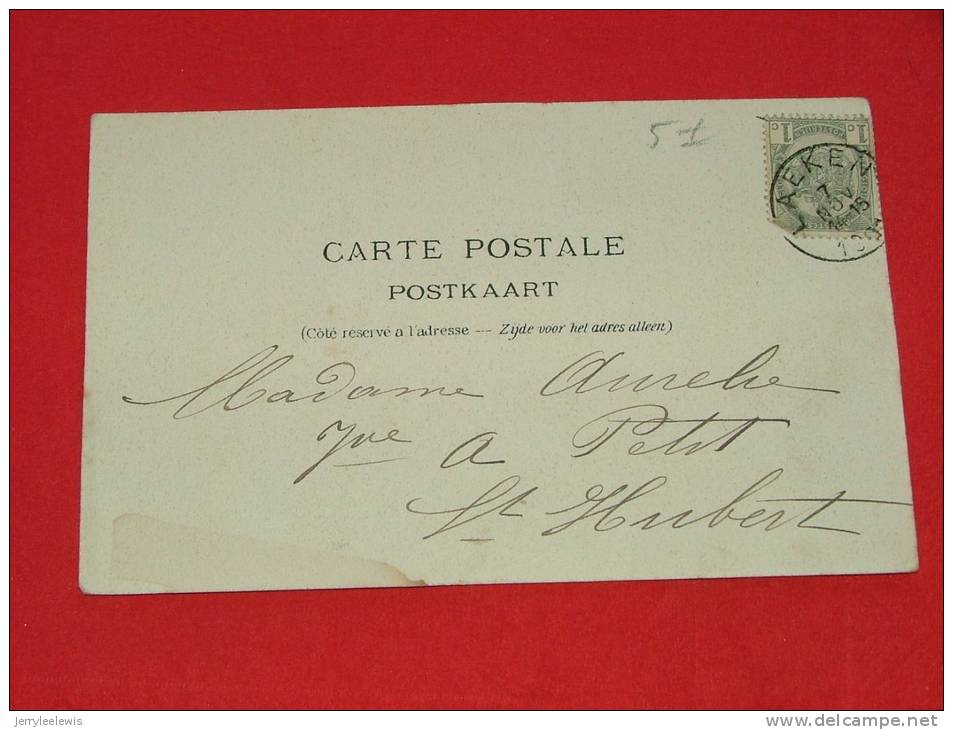 5 1
1c 1c
LAEKEN
7
NOV
15
CARTE POSTALE
POSTKAART
(Côté reservé a l'adresse --- Zijde voor het adres alleen)
Madame Aurelie
Vve A Petit
St Hubert
jerryleelewis
www.delcampe.net